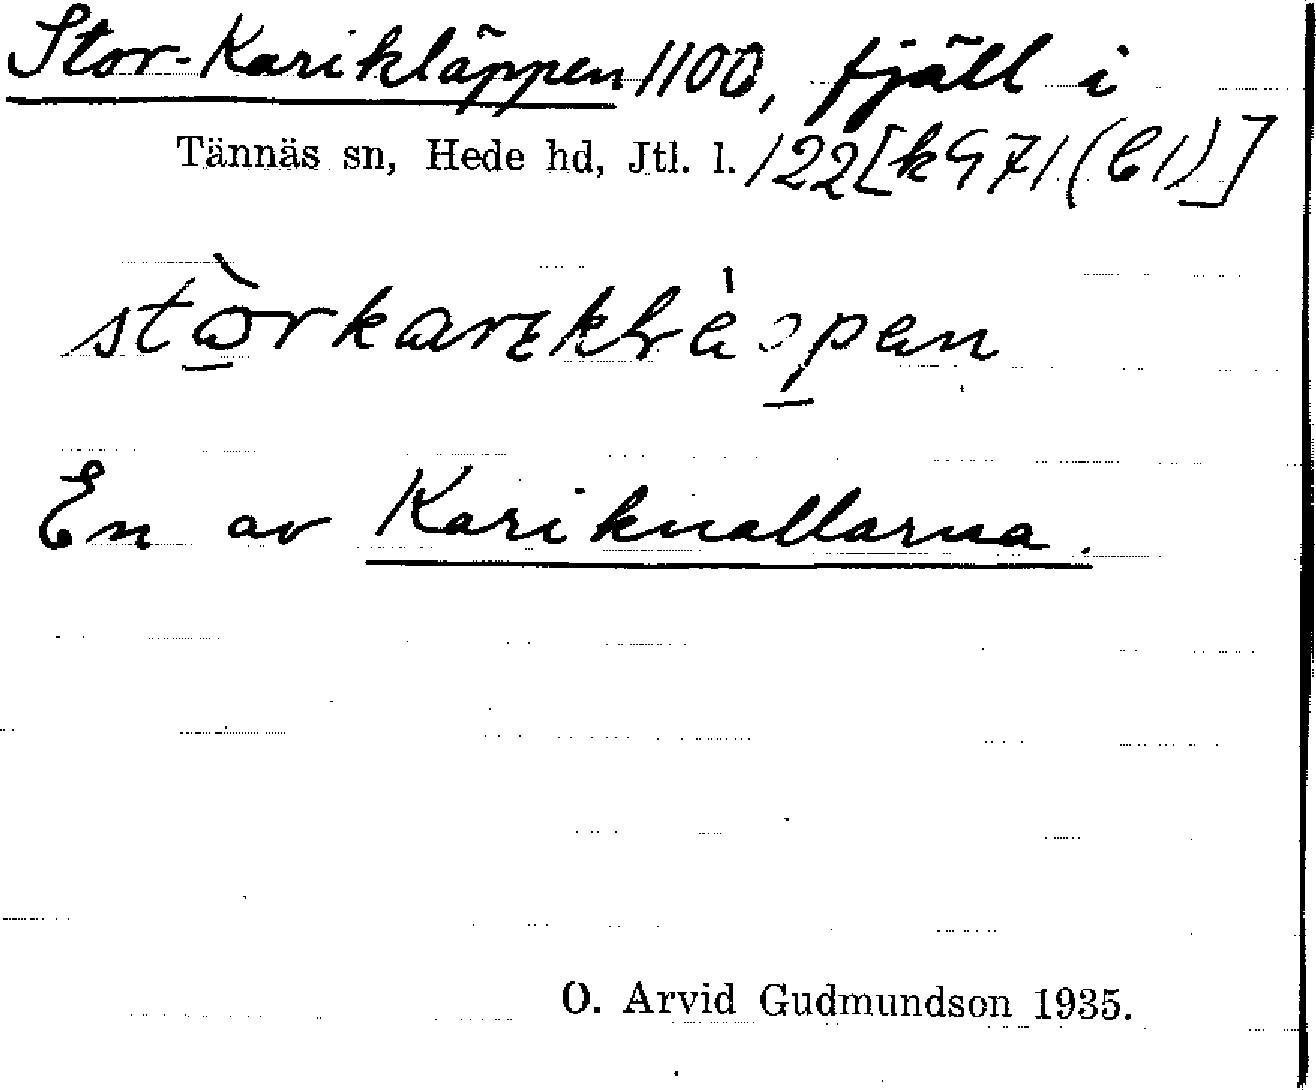 Stor-Karikläppen 1100, fjäll i
Tännäs sn, Hede hd, Jtl. l. 122[k971(C1)]
En av Kariknallarna.
O. Arvid Gudmundson 1935.